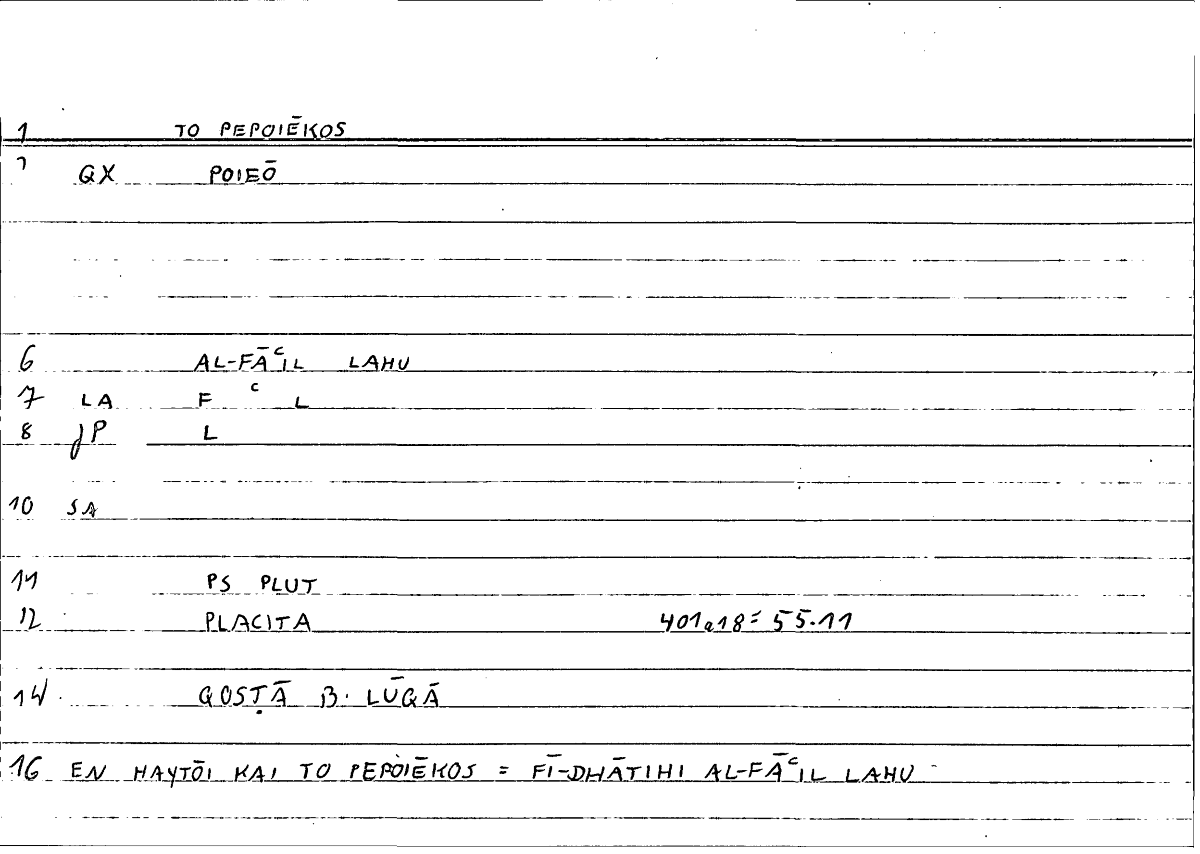 1 TO PEPOIĒKOS
GX POIEŌ
6 AL-FĀᶜIL LAHU
7 LA F ᶜ L
8 JP L
10 SA
11 PS PLUT
12 PLACITA 401a18 = 55.11
14 QOSṬĀ B. LŪQĀ
16 EN HAYTŌI KAI TO PEPOIĒKOS = FĪ-DHĀTIHI AL-FĀᶜIL LAHU